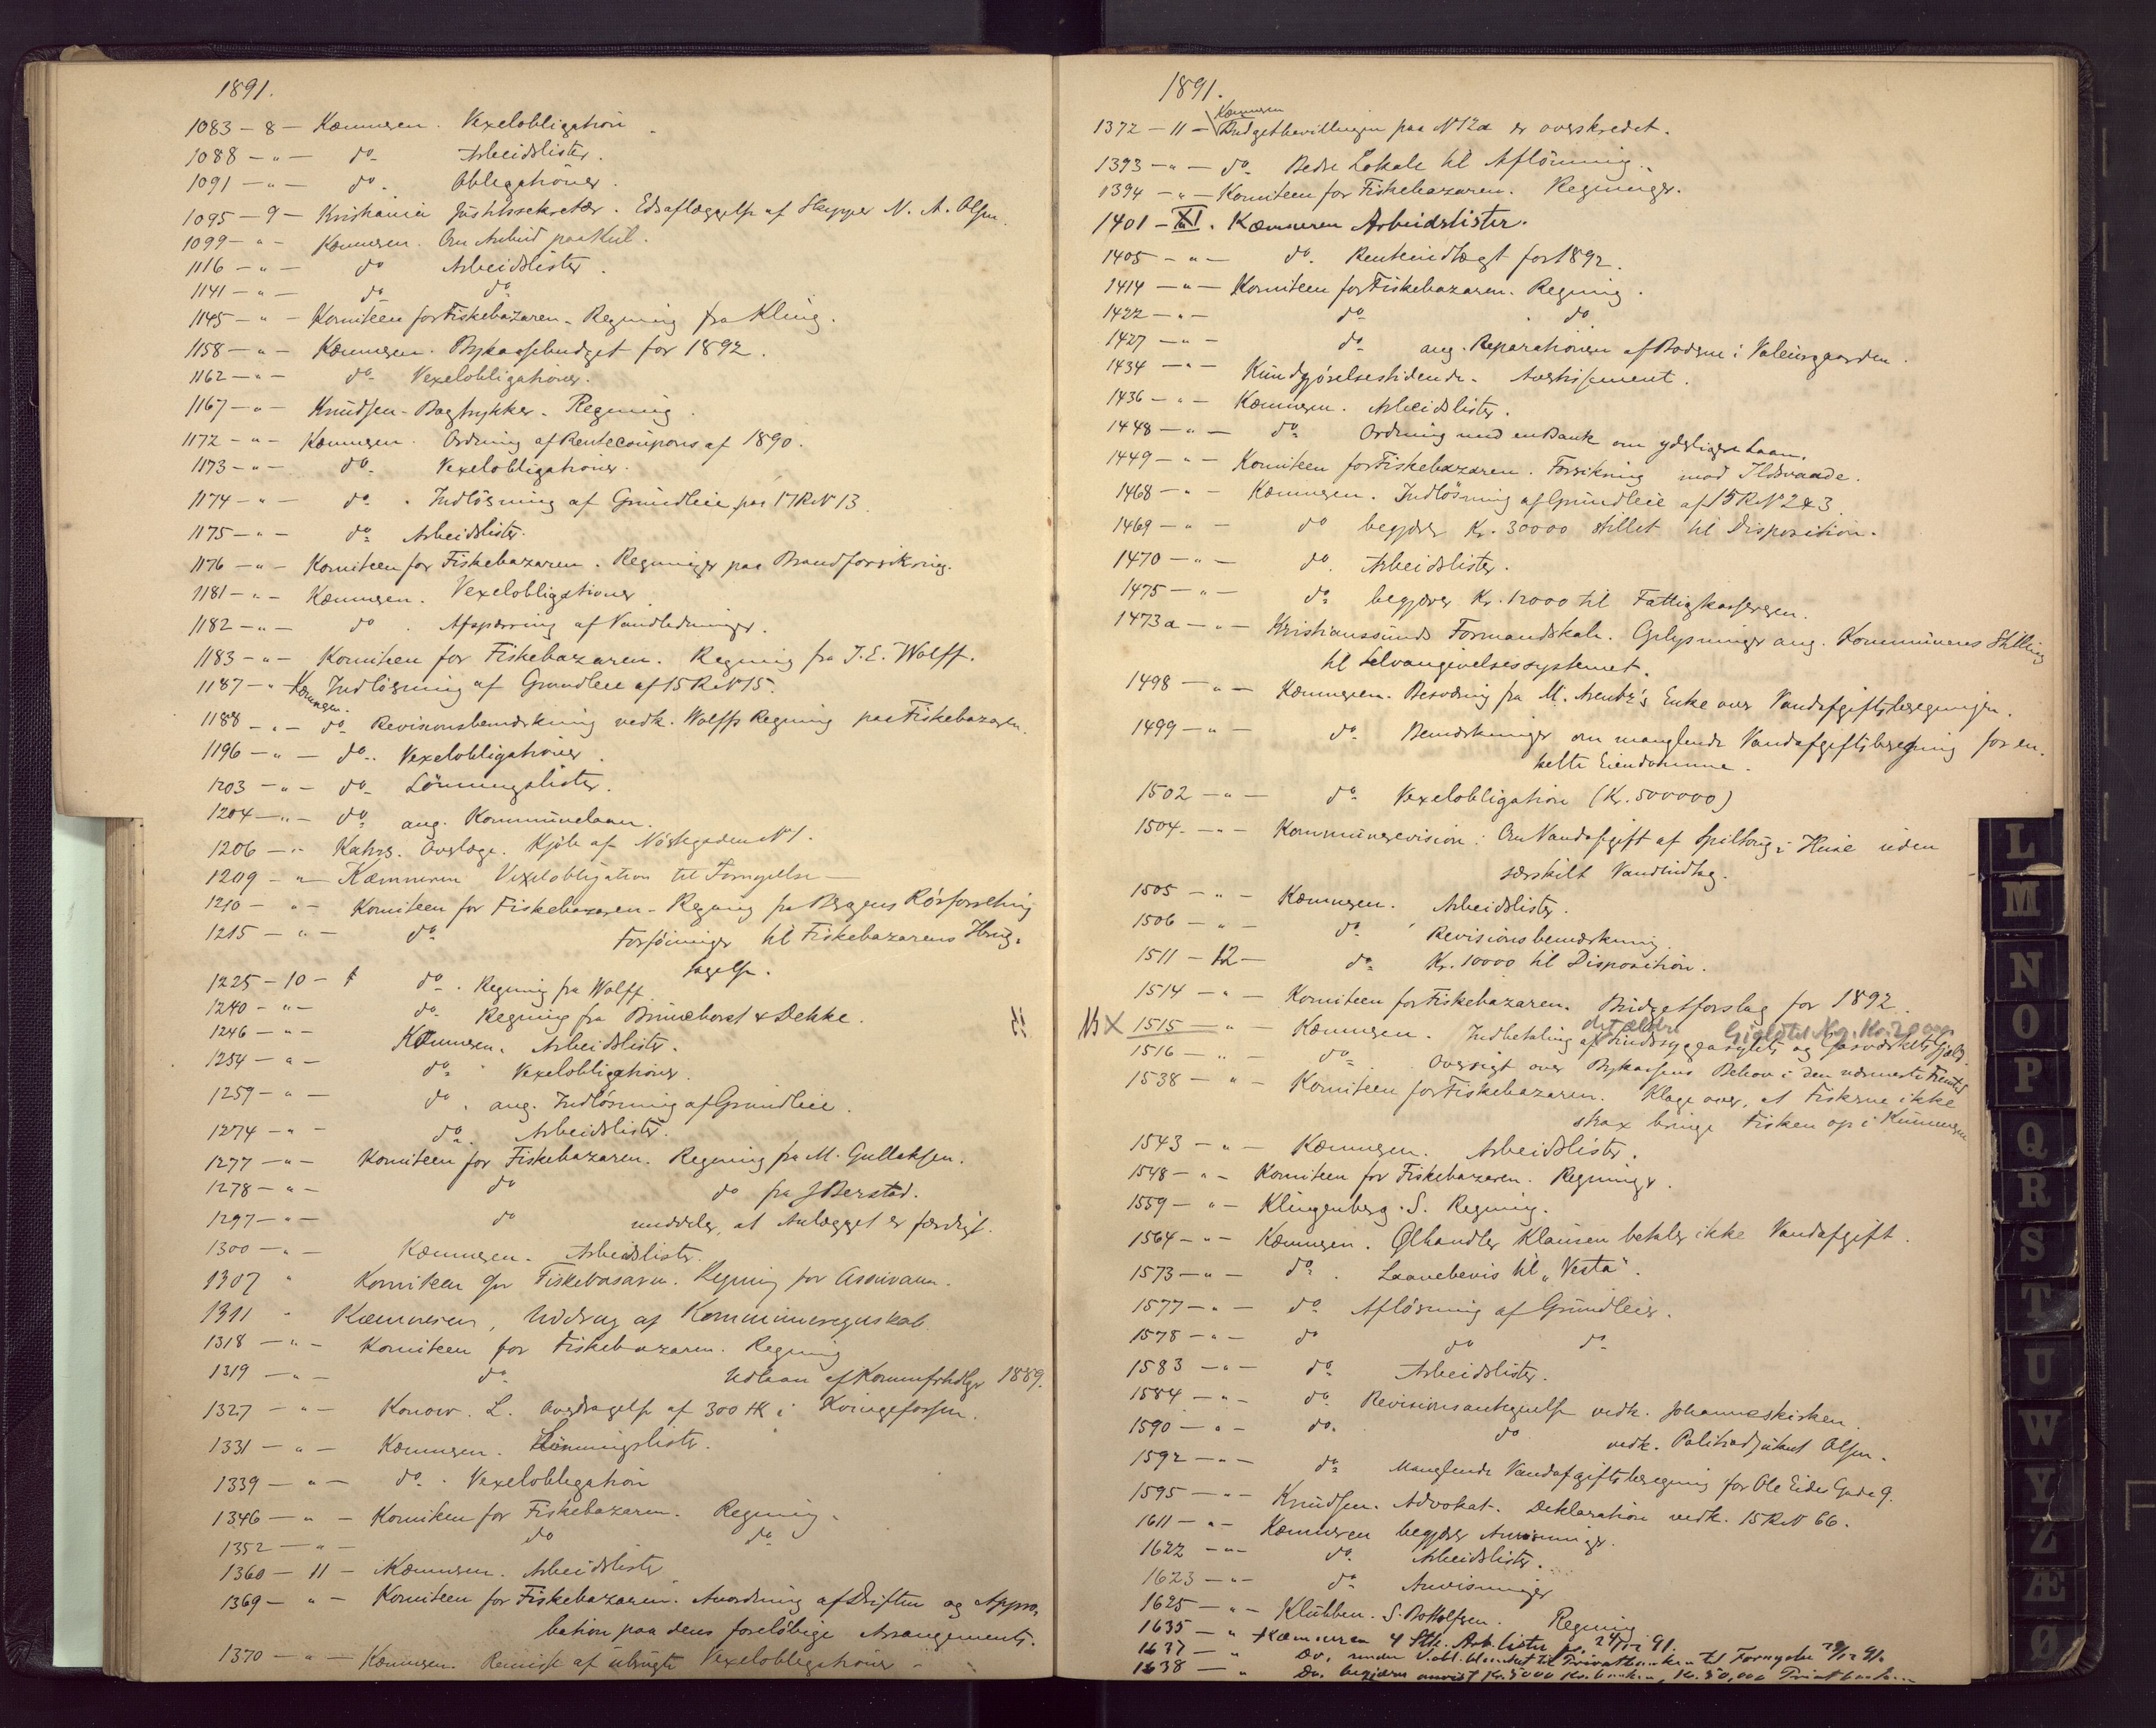 1891.
1083 – 8 – Kæmneren. Vexelobligation
1088 – " – do. Arbeidslister.
1091 – " – do. Obligationer.
1095 – 9 – Kristiania Justitssekretær. Edsaflæggelse af Skipper N. A. Olsen.
1099 – " – Kæmneren. Om Anbud paa Kul.
1116 – " – do Arbeidslister.
1141 – " – do do
1145 – " – Komiteen for Fiskebazaren. Regning fra Kling.
1158 – " – Kæmneren. Bykassebudget for 1892.
1162 – " – do. Vexelobligationer.
1167 – " – Knudsen – Bogtrykker. Regning.
1172 – " – Kæmneren. Ordning af Rentecoupons af 1890.
1173 – " – do. Vexelobligationer.
1174 – " – do. Indlösning af Grundleie paa 17 R. N 13.
1175 – " – do. Arbeidslister.
1176 – " – Komiteen for Fiskebazaren. Regninger paa Brandforsikring.
1181 – " – Kæmneren. Vexelobligationer
1182 – " – do. Afspærring af Vandledninger.
1183 – " – Komiteen for Fiskebazaren. Regning fra J. E. Wolff.
1187 – " Kæmneren. Indlösning af Grundleie af 15 R. N 15.
1188 – " – do Revisionsbemærkning vedk. Wolffs Regning paa Fiskebazaren.
1196 – " – do. Vexelobligationer.
1203 – " – do. Lönningslister.
1204 – " – do. ang. Kommunelaan.
1206 – " Kahrs. Overlæge. Kjöb af Nöstegaden N 1.
1209 – " – Kæmneren Vexelobligation til Fornyelse –
1210 – " – Komiteen for Fiskebazaren – Regning fra Bergens Rörforretning
1215 – " – do. Forföininger til Fiskebazarens Ibrug-
tagelse.
1225 – 10 – do. Regning fra Wolff
1240 – " – do. Regning fra Brunchorst & Dekke.
1246 – " – Kæmneren. Arbeidslister.
1254 – " – do. Vexelobligationer.
1259 – " – do. ang. Indlösning af Grundleie.
1274 – " – do. Arbeidslister.
1277 – " – Komiteen for Fiskebazaren. Regning fra M. Gullaksen.
1278 – " – do do fra J Berstad.
1297 – " – do meddeler, at Anlægget er færdigt.
1300 – " – Kæmneren. Arbeidslister.
1307 " Komiteen for Fiskebasaren. Regning for
1311 " Kæmneren, Uddrag af Kommuneregnskab
1318 – " – Komiteen for Fiskebazaren. Regning
1319 – " – do. Udlaan af Kommfrhdlgr 1889.
1327 – " – Konow. L. Overdragelse af 300 HK i Kvingefossen.
1331 – " – Kæmneren. Lönningsliste.
1339 – " – do. Vexelobligation
1346 – " – Komiteen for Fiskebazaren. Regning.
1352 – " – do do
1360 – 11 – Kæmneren. Arbeidslister
1369 – " – Komiteen for Fiskebazaren. Anordning af Driften og Appro-
bation paa dens foreløbige Arrangements.
1370 – " – Kæmneren. Remisse af ubrugte Vexelobligationer
1891.
Kæmneren
1372 – 11 – Budgetbevillingen paa N 12a er overskredet.
1393 – " – do. Bedre Lokale til Aflönning.
1394 – " – Komiteen for Fiskebazaren. Regninger.
1401 – XI. Kæmneren Arbeidslister.
1405 – " – do. Renteindtægt for 1892.
1414 – " – Komiteen for Fiskebazaren. Regning.
1422 – " – do do
1427 – " – do ang. Reparationen af Boderne i Valeurgaarden.
1434 – " – Kundgjörelsestidende. Avertissement.
1436 – " – Kæmneren. Arbeidslister.
1448 – " – do. Ordning med en Bank om yderligere Laan.
1449 – " – Komiteen for Fiskebazaren. Forsikring mod Ildsvaade.
1468 – " – Kæmneren. Indlösning af Grundleie af 15 R. N 2 & 3.
1469 – " – do begjærer Kr. 30000 stillet til Disposition.
1470 – " – do. Arbeidslister.
1475 – " – do. begjærer Kr. 12000 til Fattigkassereren.
1473a – " – Kristianssunds Formandskab. Oplysninger ang. Kommunens Stilling
til Selvangivelsessystemet.
1498 – " – Kæmneren. Besværing fra M. Arentz's Enke over Vandafgiftsberegningen.
1499 – " – do. Bemærkninger om manglende Vandafgiftsberegning for en-
kelte Eiendomme.
1502 – " – do. Vexelobligation (Kr. 500000)
1504 – " – Kommunerevision: Om Vandafgift af Spiltoug i Huse uden
særskilt Vandindtag.
1505 – " – Kæmneren. Arbeidslister.
1506 – " – do. Revisionsbemærkning.
1511 – 12 – do. Kr. 10000 til Disposition.
1514 – " – Komiteen for Fiskebazaren. Budgetforslag for 1892
det ældre Gjeld til N. g. Kr. 20 000
NB X 1515 – " – Kæmneren. Indbetaling af Sindssygeasylets og Gasværkets Gjæld
1516 – " – do. Oversigt over Bykassens Behov i den nærmeste Fremtid
1538 – " – Komiteen for Fiskebazaren. Klage over, at Fiskerne ikke
strax bringe Fisken op i Kummerne
1543 – " – Kæmneren. Arbeidslister.
1548 – " – Komiteen for Fiskebazaren. Regninger.
1559 – " – Klingenberg. S. Regning.
1564 – " – Kæmneren. Ølhandler Klausen betaler ikke Vandafgift.
1573 – " – do. Laanebevis til "Vesta".
1577 – " – do Aflösning af Grundleier.
1578 – " – do do do
1583 – " – do Arbeidslister.
1584 – " – do Revisionsantegnelse vedk. Johanneskirken
1590 – " – do. do vedk. Politiadjutant Olsen.
1592 – " – do. Manglende Vandafgiftsberegning for Ole Eides Gade 9.
1595 – " – Knudsen. Advokat. Deklaration vedk. 15 R. N 66.
1611 – " – Kæmneren begjærer Anvisninger.
1622 – " – do. Arbeidslister.
1623 – " – do. Anvisninger
1625 – " – Klubben. S. Botolfsen. Regning
1635 – " Kæmneren 4 Stk. Arb. lister pr. 24/12 91.
1637 – " Do, Privatbanken til Fornyelse 29/12 91.
1638 – " Do. begjærer anvist Kr. 5000 Kr. 50,000
L
M
N
O
P
Q
R
S
T
U
W
Y
Z
Æ
Ø